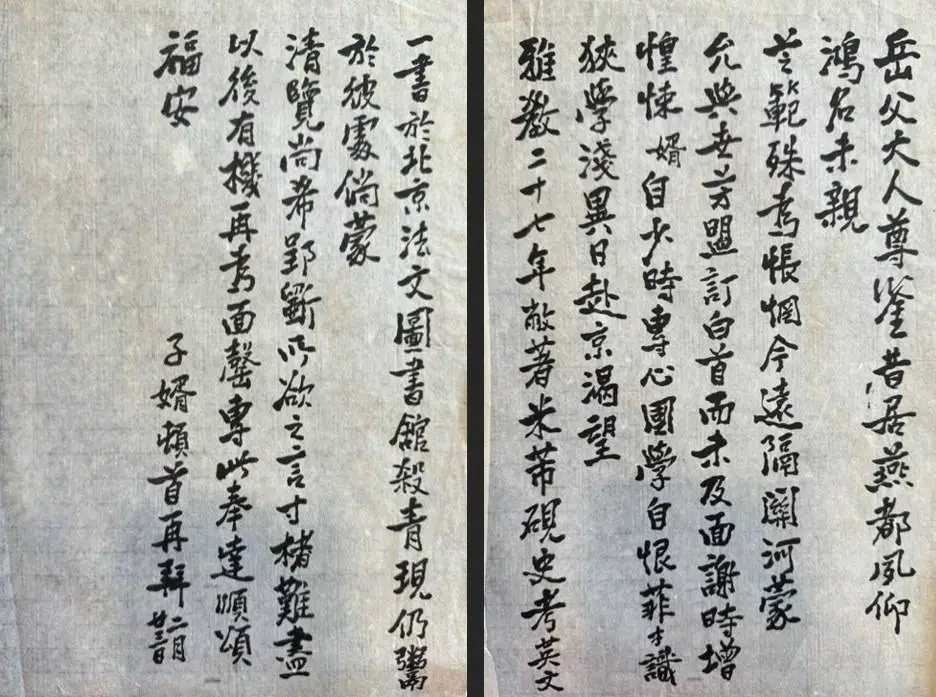 岳父大人尊鉴昔居燕都夙仰
鴻名未親
芝範殊為悵惘今遠隔關河蒙
允與世芳盟訂白首而未及面謝時增
惶悚婿自少時專心國學自恨菲才識
狹學淺異日赴京渴望
雅教二十七年敝著米芾硯史考英文
一書於北京法文圖書館殺青現仍鬻
於彼處倘蒙
清覽尚希郢斲所欲之言寸楮難盡
以後有機再為面罄專此奉達順頌
福安
子婿頓首再拜 二月廿三日